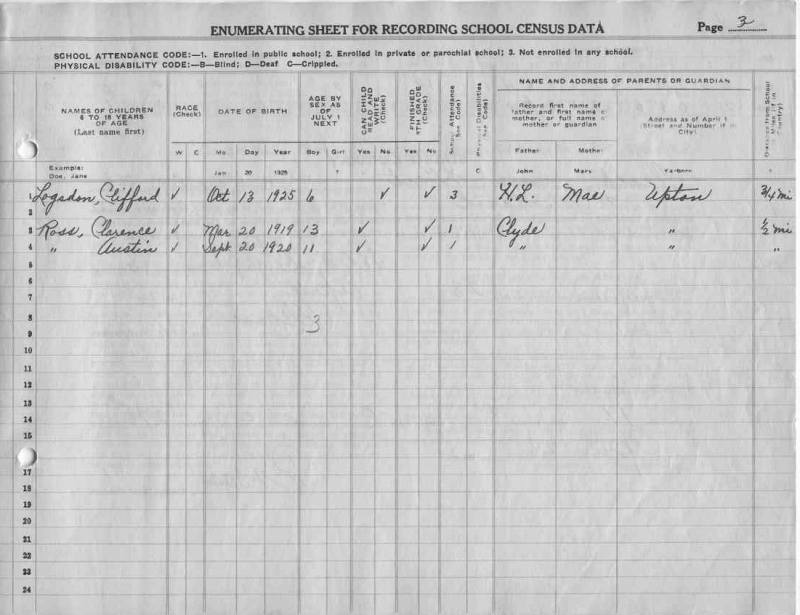 ENUMERATING SHEET FOR RECORDING SCHOOL CENSUS DATA Page 3
SCHOOL ATTENDANCE CODE:—1. Enrolled in public school; 2. Enrolled in private or parochial school; 3. Not enrolled in any school.
PHYSICAL DISABILITY CODE:—B—Blind; D—Deaf C—Crippled.
NAMES OF CHILDREN 6 TO 18 YEARS OF AGE (Last name first)
RACE (Check)
DATE OF BIRTH
AGE BY SEX AS OF JULY 1 NEXT
CAN CHILD READ AND WRITE (Check)
FINISHED 8TH GRADE (Check)
School Attendance (See Code)
Physical Disabilities (See Code)
NAME AND ADDRESS OF PARENTS OR GUARDIAN
Record first name of father and first name of mother, or full name of mother or guardian
Address as of April 1 (Street and Number if in City)
Distance from School in Miles (if in Country)
W C Mo. Day Year Boy Girl Yes No Yes No Father Mother
Example: Doe, Jane Jan 20 1925 7 C John Mary
1 Logsdon, Clifford ✓ Oct 13 1925 6 ✓ ✓ 3 H.L. Mae Upton 3/4 mi
2
3 Ross, Clarence ✓ Mar 20 1919 13 ✓ ✓ 1 Clyde " 1/2 mi
4 " Austin ✓ Sept 20 1920 11 ✓ ✓ 1 " " "
5
6
7
8 3
9
10
11
12
13
14
15
17
18
19
20
21
22
23
24